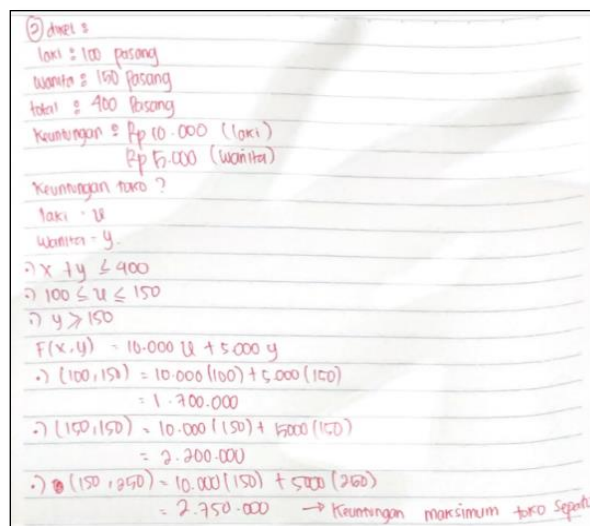 ② diket :
laki : 100 pasang
wanita : 150 Pasang
total : 400 Pasang
Keuntungan : Rp 10.000 (laki)
Rp 5.000 (wanita)
Keuntungan toko ?
laki = x
wanita = y.
•) x + y ≤ 400
•) 100 ≤ x ≤ 150
•) y ≥ 150
F(x,y) = 10.000 x + 5.000 y
•) (100,150) = 10.000 (100) + 5.000 (150)
= 1.700.000
•) (150,150) = 10.000 (150) + 5000 (150)
= 2.200.000
•) (150,250) = 10.000 (150) + 5000 (250)
= 2.750.000 → Keuntungan maksimum toko sepatu